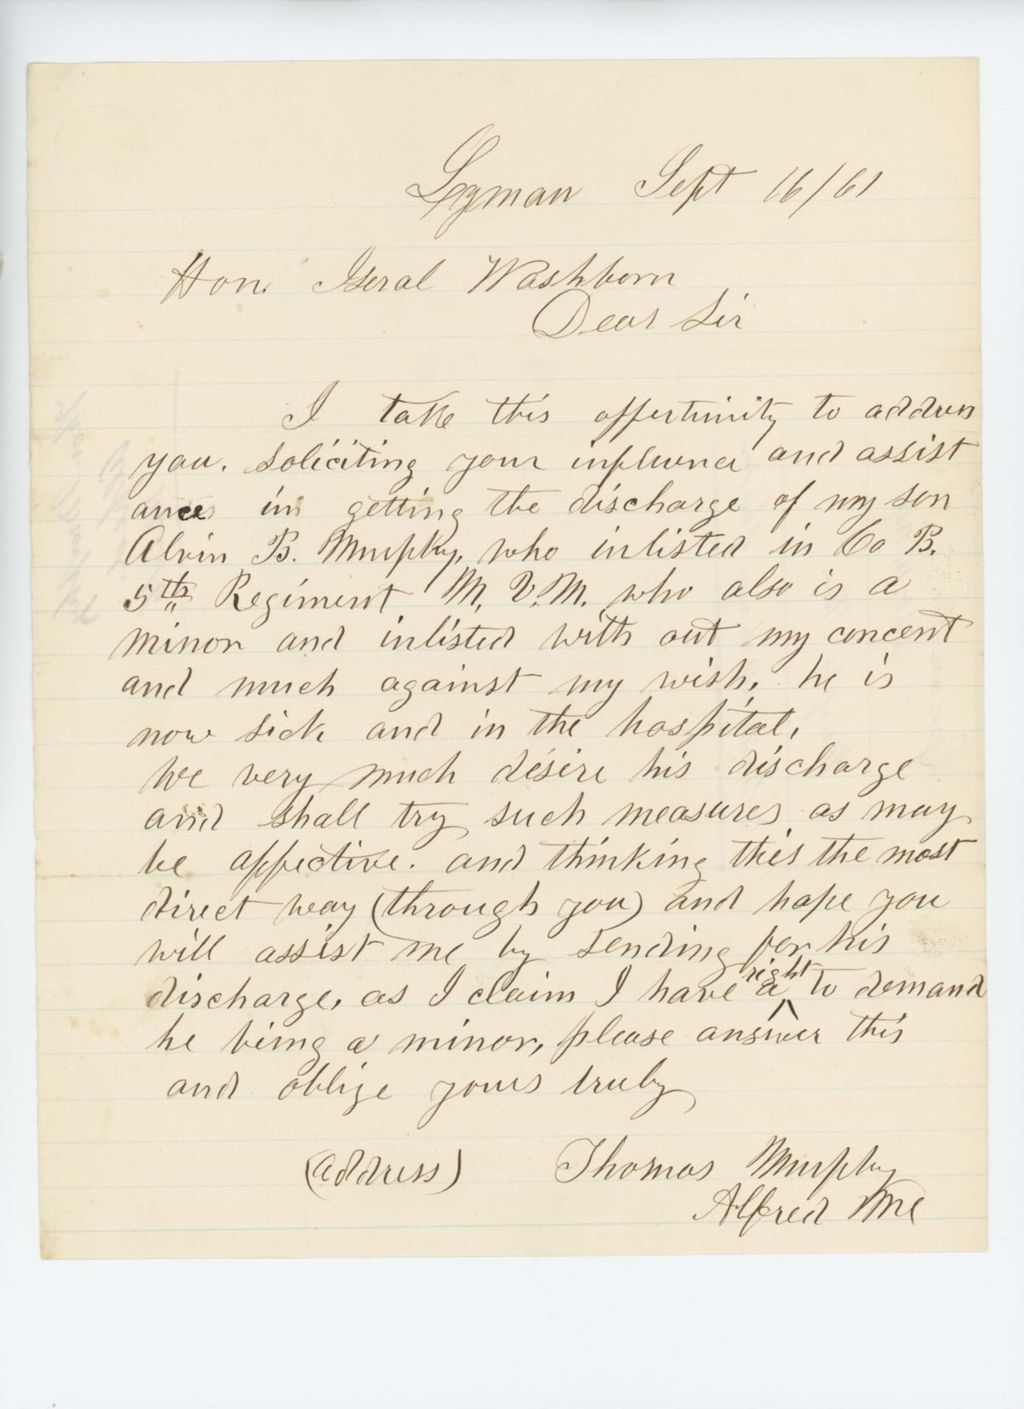 Lyman Sept 16/61
Hon. Iseral Washborn
Dear Sir
I take this oppertunity to address
you. soliciting your influence and assist
ance in getting the discharge of my son
Alvin B. Murphy, who inlisted in Co B.
5th Regiment M. V. M. who also is a
minor and inlisted with out my concent
and much against my wish, he is
now sick and in the hospital,
We very much desire his discharge
and shall try such measures as may
be affective. and thinking this the most
direct way (through you) and hope you
will assist me by sending for his
discharge, as I claim I have a right to demand
he being a minor, please answer this
and oblige yours truly
(address) Thomas Murphy
Alfred Me